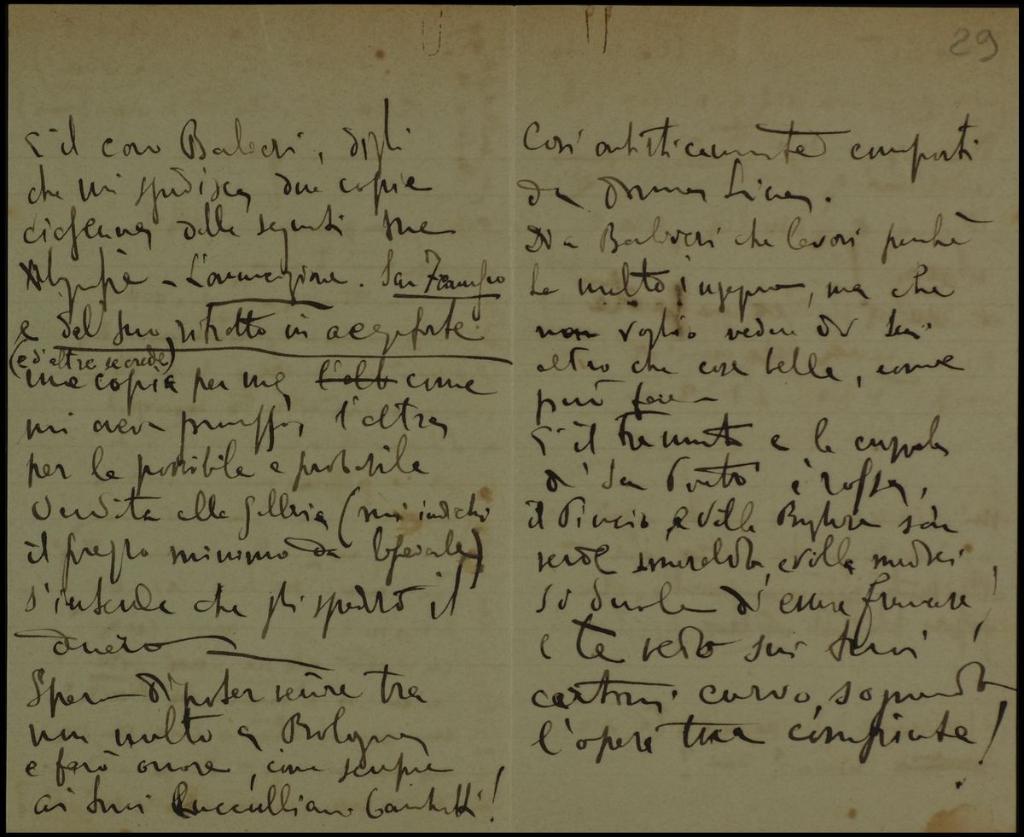 29
E il caro Balestri, digli
che mi spedisca due copie
ciascuna delle seguenti sue
L'annunciazione. San Francesco
e del suo ritratto in acquaforte
(e d'altre se crede)
una copia per me, come
mi aveva promesso, l'altra
per la possibile e probabile
vendita alla Galleria (mi indichi
il prezzo minimo da lasciale)
s'intende che gli spedirò il
denaro
Spero di poter venire tra
non molto a Bologna
e farò onore, come sempre
ai tuoi Luccullliani banchetti!
Così artisticamente composti
da donna Lina.
Di a Balestri che lavori perché
ha molto ingegno, ma che
non voglio vedere di lui
altro che cose belle, come
può fare
E il tramonto e la cuppola
di San Pietro è rossa,
il Pincio e villa Borghese son
verde smeraldo, e villa medici
si duole di essere francese!
E te vedo sui tuoi
cartoni curvo, sognando
l'opera tua compiuta!